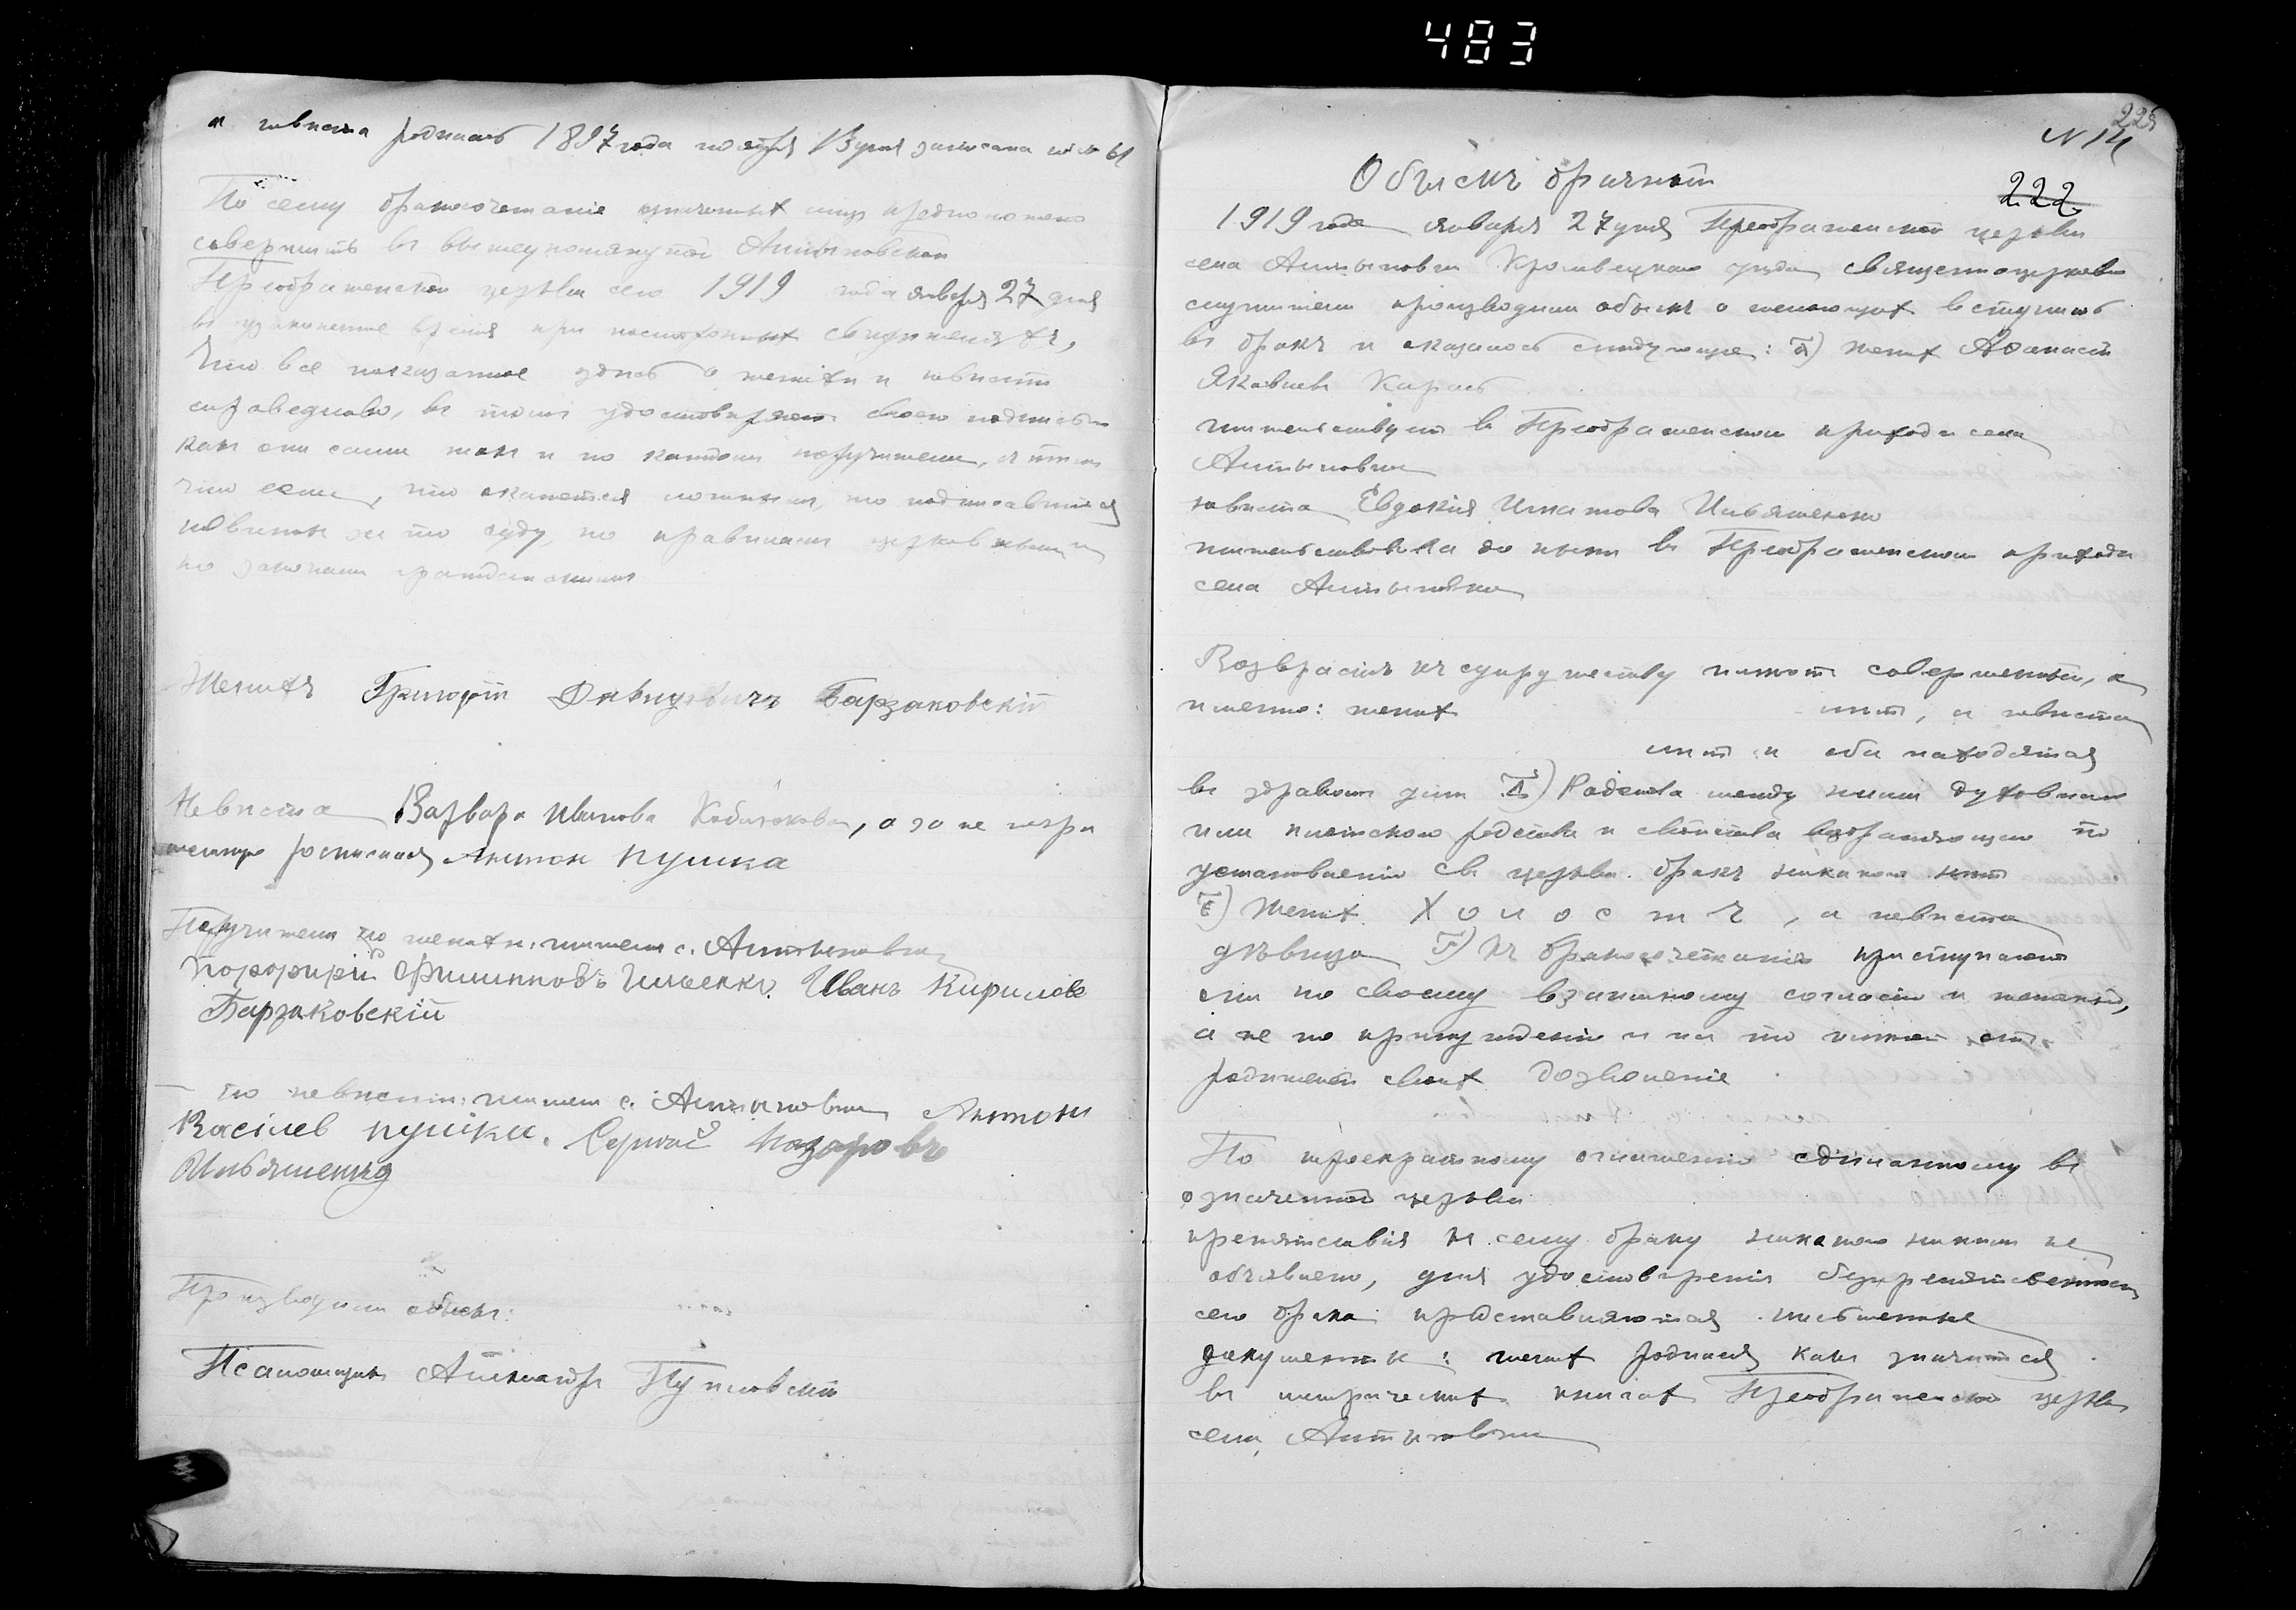 483
а невѣста родилась 1897 года ноября 13 дня записана въ № 61
По сему бракосочетаніе означенныхъ лицъ предположено
совершить въ вышеупомянутой Алтыновской
Преображенской церкви сего 1919 года января 27 дня
въ узаконенное время при постороннихъ свидѣтеляхъ,
Что все показанное здѣсь о женихѣ и невѣстѣ
справедливо, въ томъ удостовѣряютъ своею подписью
какъ они сами такъ и по каждомъ поручители, съ тѣмъ
что если, что окажется ложнымъ, то подписавшіеся
повинны за то суду, по правиламъ церковнымъ и
по законамъ гражданскимъ
Женихъ Григорій Давидовичъ Барзаковскій
Невѣста Варвара Иванова, а за не гра
росписался Антон Пушка
Поручители по женихѣ: жители с. Алтыновки
Порфирій Филипповъ Ильенко. Иванъ Кирилов
Барзаковскій
— по невѣстѣ: жители с. Алтыновки Антон
Васілев пушка. Сергѣй Назаровъ
Ильяшенко
Производили обыскъ:
Псаломщикъ Александръ
225
N 14
Обыскъ брачный
222
1919 года января 27 дня Преображенской церкви
села Алтыновки Кролевецкаго уѣзда священноцерковно
служители производили обыскъ о желающихъ вступить
въ бракъ и оказалось слѣдующее: а) женихъ Аѳанасій
Яковлевъ Карась
жительствуетъ въ Преображенскомъ приходѣ села
Алтыновки
невѣста Евдокія Игнатова Ильяшенко
жительствовала до нынѣ въ Преображенскомъ приходѣ
села Алтыновки
Возврастъ къ супружеству имѣютъ совершенный, а
именно: женихъ лѣтъ, а невѣста
лѣтъ и оба находятся
въ здравомъ умѣ Д) Родства между ними духовнаго
или плотскаго родства и свойства возбраняющаго по
установленію св церкви бракъ никакого нѣтъ
Е) Женихъ Холостъ, а невѣста
дѣвица къ бракосочетанію приступаютъ
они по своему взаимному согласію и желанію,
а не по принужденію и на то имѣютъ отъ
родителей своихъ дозволеніе
По троекратному оглашенію сдѣланному въ
означенной церкви
препятствія къ сему браку никакого никѣмъ не
объявлено, для удостовѣренія безпрепятственности
сего брака представляются письменные
документы: женихъ родился какъ значится
въ метрическихъ книгахъ Преображенской церкви
села Алтыновки